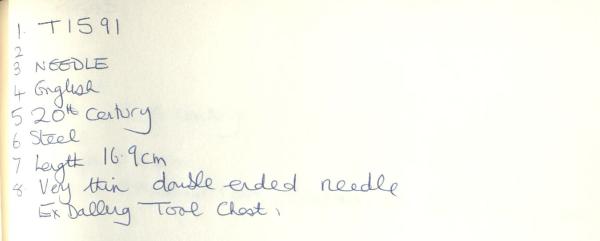 1. T1591
2
3 NEEDLE
4 English
5 20th Century
6 Steel
7 Length 16.9cm
8 Very thin double ended needle
Ex Dalling Tool Chest.